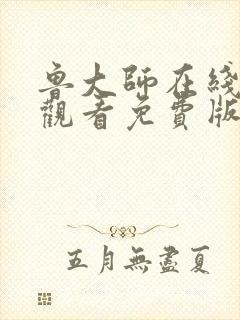 鲁大師在綫
觀看免費版
五月無盡夏